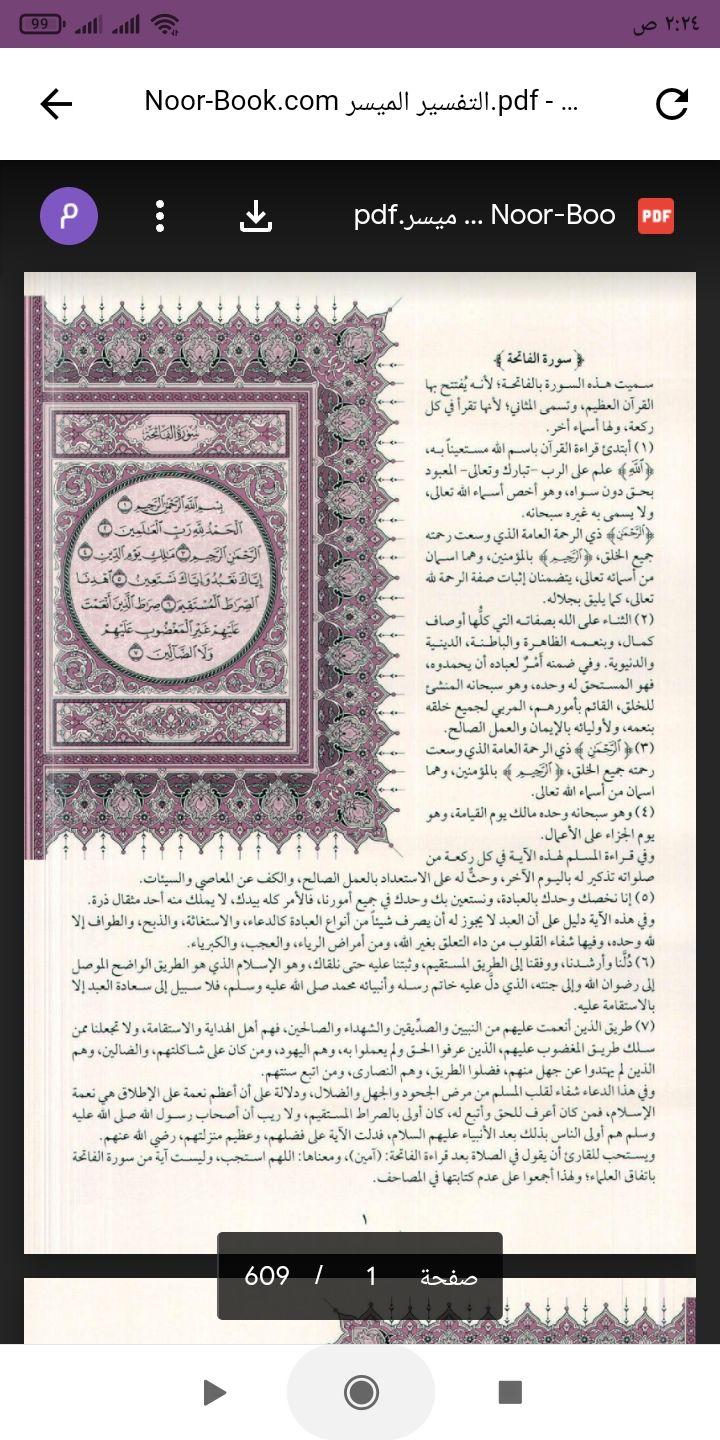 ٢:٢٤ ص
99
Noor-Book.com التفسير الميسر.pdf - ...
Noor-Boo ... ميسر.pdf
PDF
م
﴿ سورة الفاتحة ﴾
سميت هذه السورة بالفاتحة؛ لأنه يُفتتح بها
القرآن العظيم، وتسمى المثاني؛ لأنها تقرأ في كل
ركعة، ولها أسماء أخر.
(١) أبتدئ قراءة القرآن باسم الله مستعيناً به،
﴿اللَّهِ﴾ علم على الرب -تبارك وتعالى- المعبود
بحق دون سواه، وهو أخص أسماء الله تعالى،
ولا يسمى به غيره سبحانه.
﴿الرَّحْمَنِ﴾ ذي الرحمة العامة الذي وسعت رحمته
جميع الخلق، ﴿الرَّحِيمِ﴾ بالمؤمنين، وهما اسمان
من أسمائه تعالى، يتضمنان إثبات صفة الرحمة لله
تعالى، كما يليق بجلاله.
(٢) الثناء على الله بصفاته التي كلُّها أوصاف
كمال، وبنعمه الظاهرة والباطنة، الدينية
والدنيوية. وفي ضمنه أَمْرٌ لعباده أن يحمدوه،
فهو المستحق له وحده، وهو سبحانه المنشئ
للخلق، القائم بأمورهم، المربي لجميع خلقه
بنعمه، ولأوليائه بالإيمان والعمل الصالح.
(٣) ﴿ الرَّحْمَنِ ﴾ ذي الرحمة العامة الذي وسعت
رحمته جميع الخلق، ﴿ الرَّحِيمِ ﴾ بالمؤمنين، وهما
اسمان من أسماء الله تعالى.
(٤) وهو سبحانه وحده مالك يوم القيامة، وهو
يوم الجزاء على الأعمال.
وفي قراءة المسلم لهذه الآية في كل ركعة من
صلواته تذكير له باليوم الآخر، وحثٌّ له على الاستعداد بالعمل الصالح، والكف عن المعاصي والسيئات.
(٥) إنا نخصك وحدك بالعبادة، ونستعين بك وحدك في جميع أمورنا، فالأمر كله بيدك، لا يملك منه أحد مثقال ذرة.
وفي هذه الآية دليل على أن العبد لا يجوز له أن يصرف شيئاً من أنواع العبادة كالدعاء، والاستغاثة، والذبح، والطواف إلا
لله وحده، وفيها شفاء القلوب من داء التعلق بغير الله، ومن أمراض الرياء، والعجب، والكبرياء.
(٦) دُلَّنا وأرشدنا، ووفقنا إلى الطريق المستقيم، وثبتنا عليه حتى نلقاك، وهو الإسلام الذي هو الطريق الواضح الموصل
إلى رضوان الله وإلى جنته، الذي دلَّ عليه خاتم رسله وأنبيائه محمد صلى الله عليه وسلم، فلا سبيل إلى سعادة العبد إلا
بالاستقامة عليه.
(٧) طريق الذين أنعمت عليهم من النبيين والصدِّيقين والشهداء والصالحين، فهم أهل الهداية والاستقامة، ولا تجعلنا ممن
سلك طريق المغضوب عليهم، الذين عرفوا الحق ولم يعملوا به، وهم اليهود، ومن كان على شاكلتهم، والضالين، وهم
الذين لم يهتدوا عن جهل منهم، فضلوا الطريق، وهم النصارى، ومن اتبع سنتهم.
وفي هذا الدعاء شفاء لقلب المسلم من مرض الجحود والجهل والضلال، ودلالة على أن أعظم نعمة على الإطلاق هي نعمة
الإسلام، فمن كان أعرف للحق وأتبع له، كان أولى بالصراط المستقيم، ولا ريب أن أصحاب رسول الله صلى الله عليه
وسلم هم أولى الناس بذلك بعد الأنبياء عليهم السلام، فدلت الآية على فضلهم، وعظيم منزلتهم، رضي الله عنهم.
ويستحب للقارئ أن يقول في الصلاة بعد قراءة الفاتحة: (آمين)، ومعناها: اللهم استجب، وليست آية من سورة الفاتحة
باتفاق العلماء؛ ولهذا أجمعوا على عدم كتابتها في المصاحف.
سُورَةُ الفَاتِحَةِ
بِسْمِ اللَّهِ الرَّحْمَنِ الرَّحِيمِ ١
الْحَمْدُ لِلَّهِ رَبِّ الْعَالَمِينَ ٢
الرَّحْمَنِ الرَّحِيمِ ٣ مَالِكِ يَوْمِ الدِّينِ ٤
إِيَّاكَ نَعْبُدُ وَإِيَّاكَ نَسْتَعِينُ ٥ اهْدِنَا
الصِّرَاطَ الْمُسْتَقِيمَ ٦ صِرَاطَ الَّذِينَ أَنْعَمْتَ
عَلَيْهِمْ غَيْرِ الْمَغْضُوبِ عَلَيْهِمْ
وَلَا الضَّالِّينَ ٧
١
صفحة 1 / 609